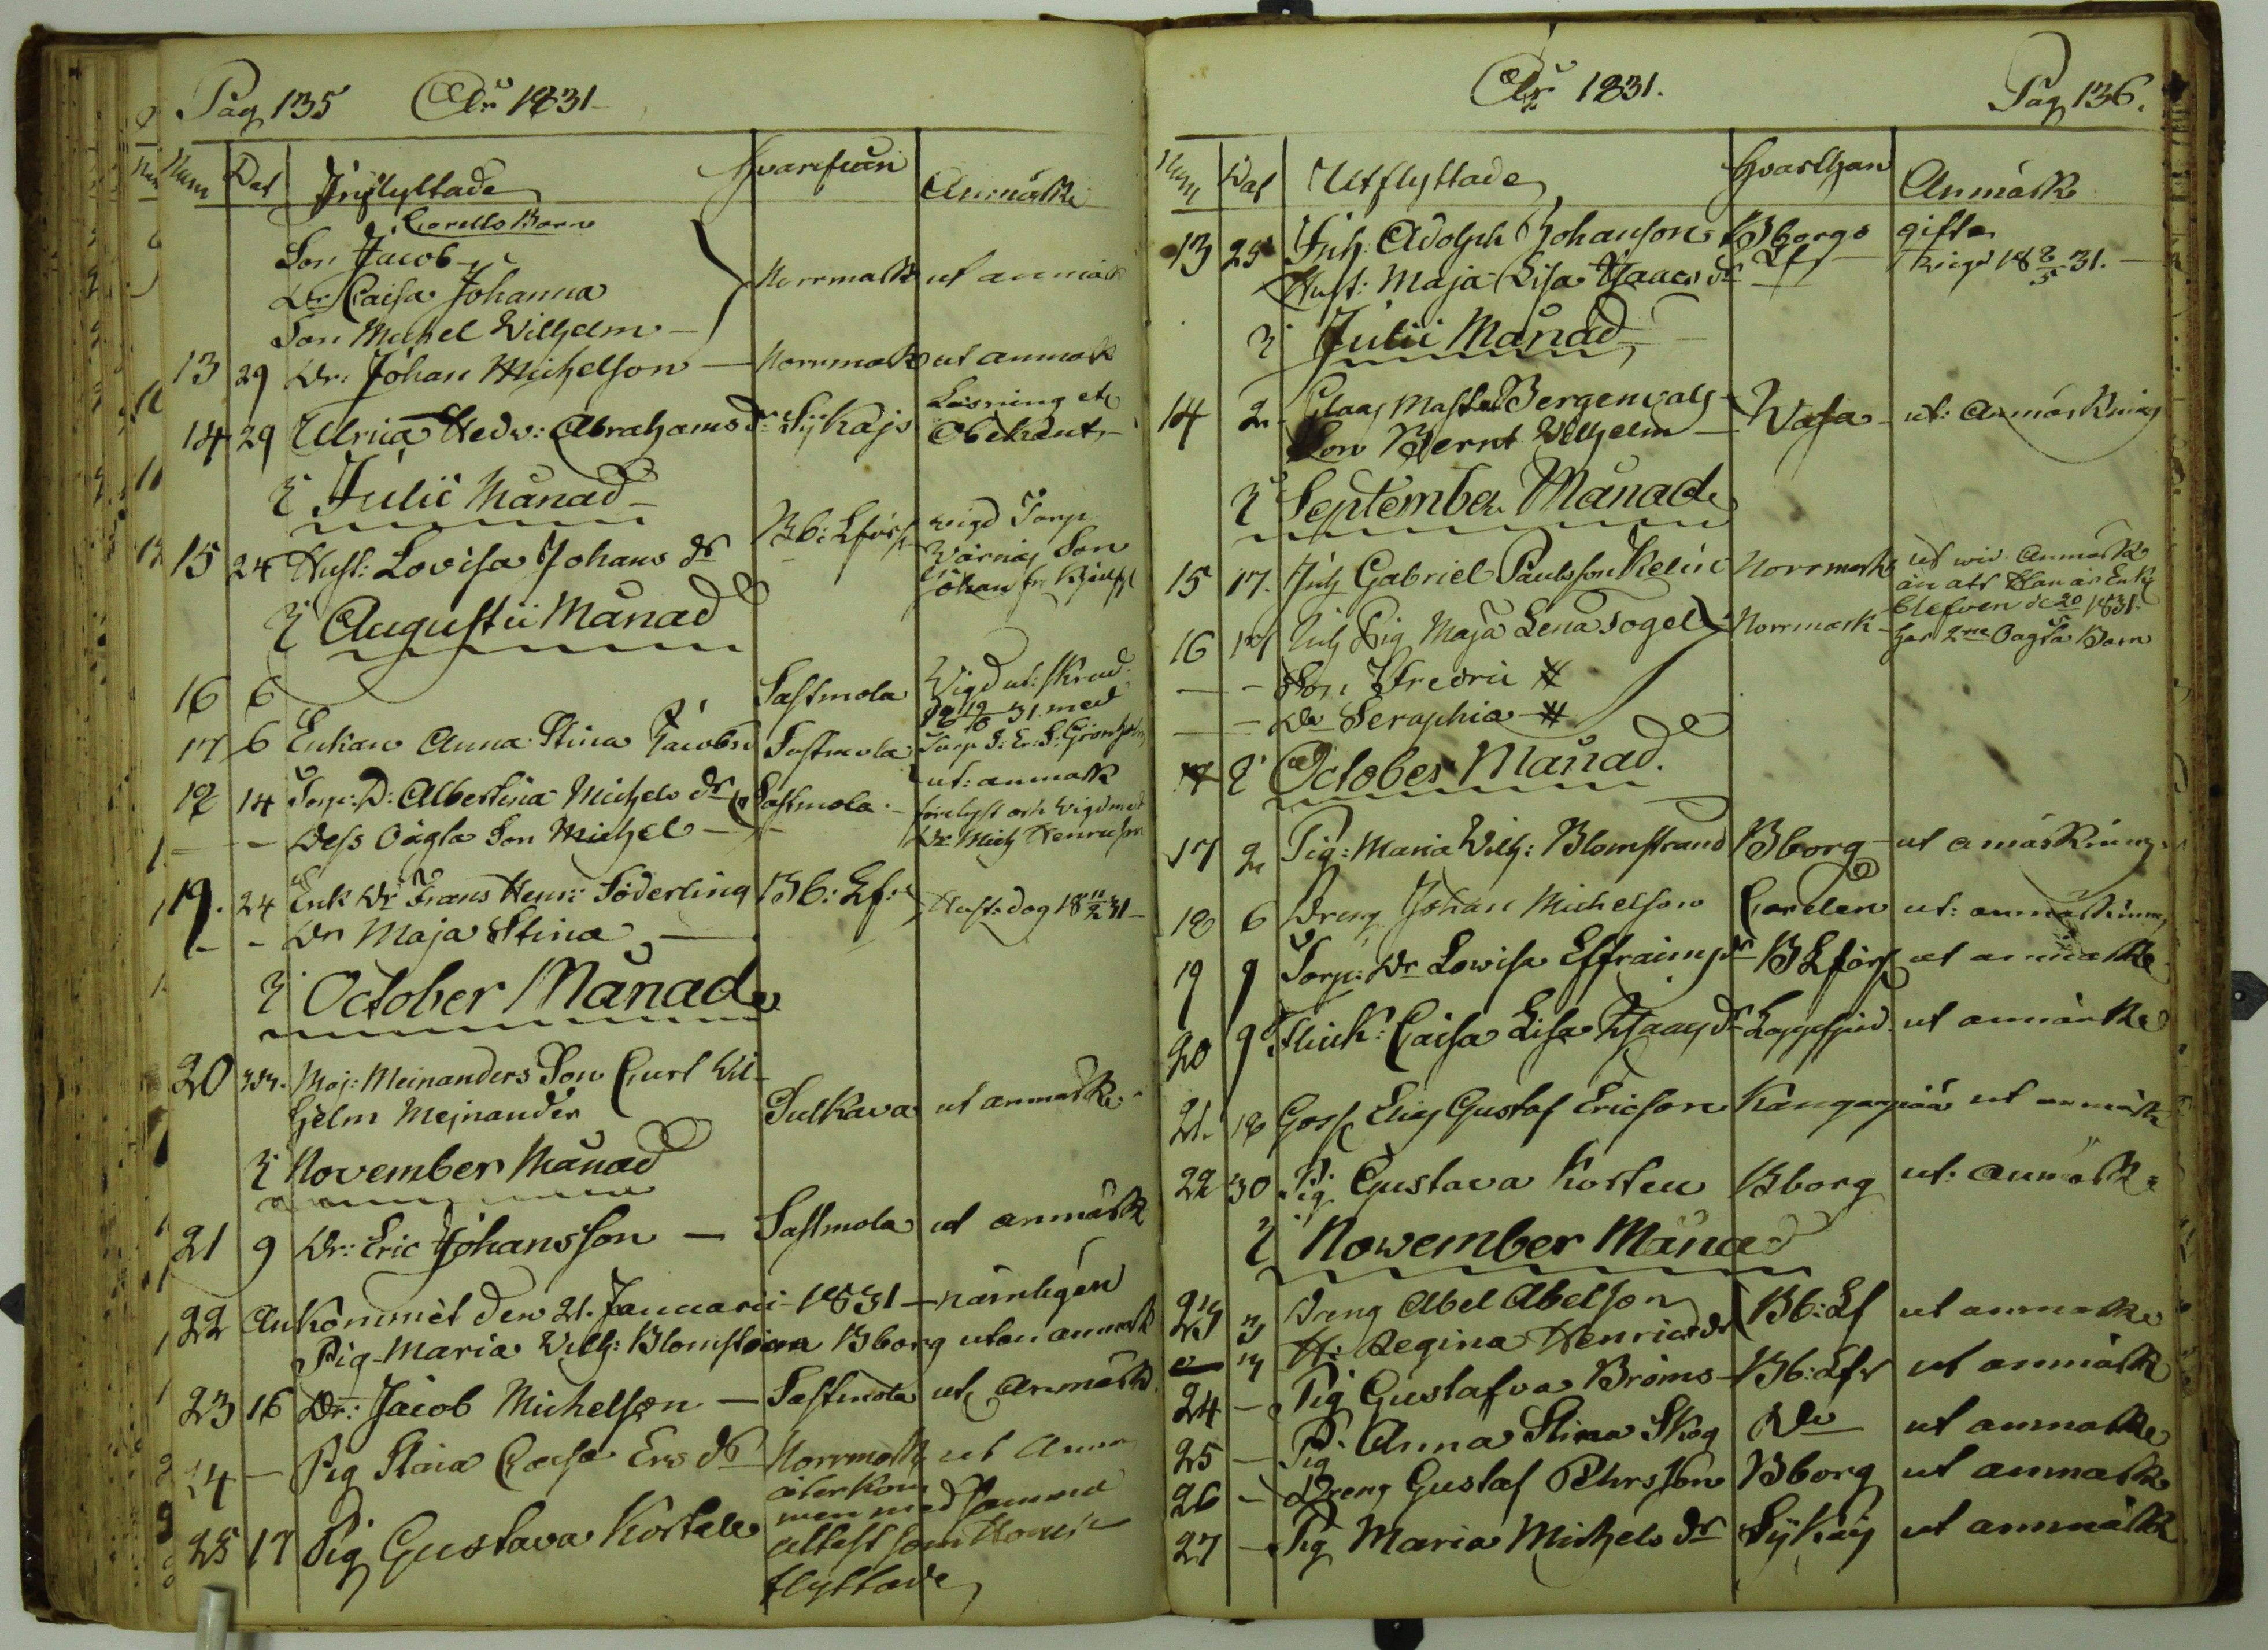 Pag 135 År 1831
Num Dat Inflyttade Hvarifrån Anmärk
Corells Barn
Son Jacob
Dr Caisa Johanna Norrmark ut anmärk
Son Michel Wilhelm
13 29 Dr: Johan Michelson Norrmark ut anmärk
14 29 Ulrica Hedv: Abrahams dr Sykajs Läsning etc Obekant
I Julii Månad
15 24 Hust: Lovisa Johans dr Bb: Lförs vigd Torp
Son
Johan fr
I Augustii Månad
16 6 Sastmola Vigd ut:
18 19/6 31. med
17 6 Enkan Anna Stina Jacobs Sastmola Torp
18 14 Torp: D: Albertina Michels dr Sastmola ut: anmärk
förelyst och vigd med
— — Dess Oägta Son Michel — Dr: Mich Henricson
19. 24 Enk Dr Frans Henr: Söderling Bb: Lf: Hust: dog 18 11/2 31
— — Dr Maja Stina
I October Månad
20 Maj: Meinanders Son Curt Wil-
helm Mejnander Sulkava ut anmärk
I November Månad
21 9 Dr: Eric Johansson — Sastmola ut anmärk
22 Ankommet den 21. Januarii 1831 — nämligen
Pig Maria Vilh: Blomström Bborg utan anmärk
23 16 Dr: Jacob Michelson — Sastmola ut anmärk
24 — Pig Caisa Ers dr Norrmark ut anm
25 17 Pig Gustava Korten återkom
men med samma
attest som Hon
flyttade
År 1831. Pag 136.
Num Dat Utflyttade Hvarthan Anmärk
13 25 Inh: Adolph Johanson Bborgs gifte
Hust: Maja Lisa Isaacs dr Lf vigd 18 8/5 31.
I Julii Månad
14 2 Bergenvals
Son Bernt Wilhelm Wasa ut: Anmärkning
I September Månad
15 17. Inh Gabriel Paulsson Kelin Norrmark ut vid Anmärk
än att Han är Enk
blefven d 20 1831.
16 17 Inh Pig Maja Lena Fogel Norrmark har 2ne Oägta Barn
— — Son Fredric
— — Dr Seraphia
I October Månad.
17 2 Pig: Maria Vilh: Blomstrand Bborg ut anmärkning
18 6 Dreng Johan Michelson Carelen ut: anmärkning
19 9 Torp: Dr Lovisa Effraims dr B Lförs ut anmärk
20 9 Flick: Caisa Lisa Isaacs dr Lappfjerd ut anmärk
21. 18 Goss Elias Gustaf Ericson Kangaspää ut anmärk
22 30 Pig Gustava Korten Bborg ut: anmärk
I November Månad
23 3 Dreng Abel Abelson Bb: Lf ut anmärk
— 3 H: Regina Henrics dr
24 — Pig Gustafva Bröms Bb: Lfs ut anmärk
25 — Pig Anna Stina Skog Do ut anmärk
26 — Dreng Gustaf Pehrsson Bborg ut anmärk
27 — Pig Maria Michels dr Sykaj ut anmärk